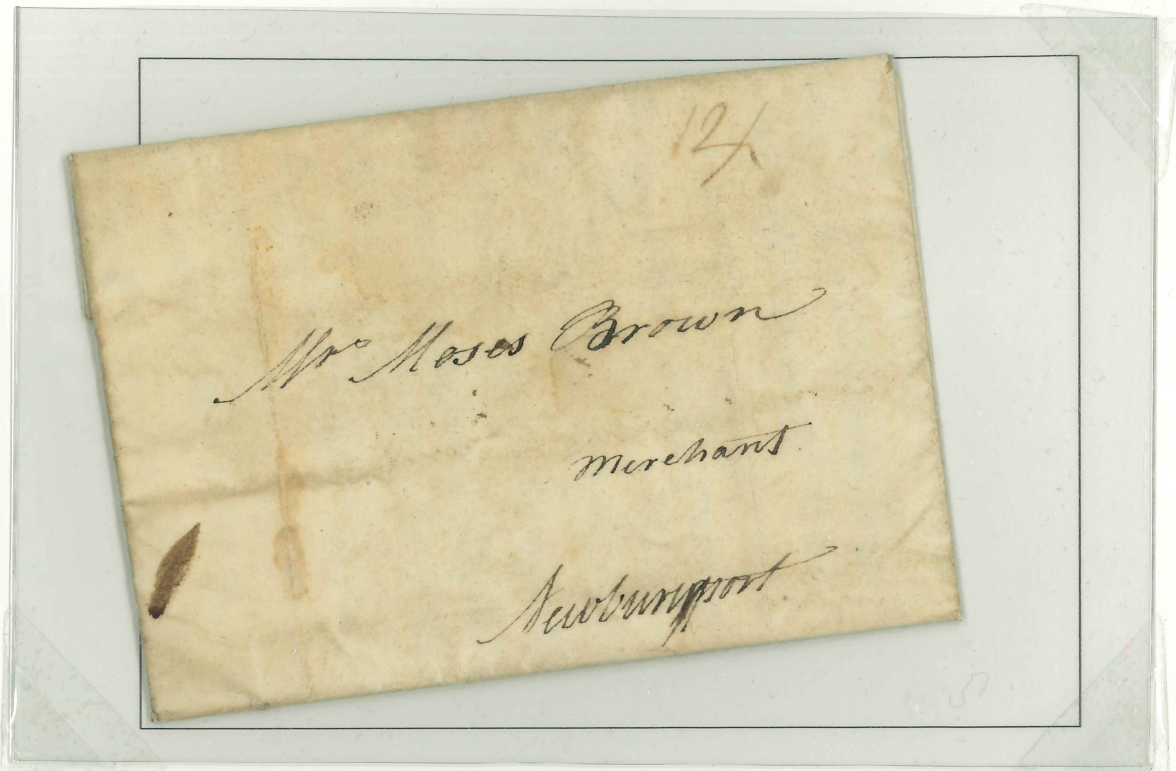 12/
Mr. Moses Brown
Merchant
Newburyport